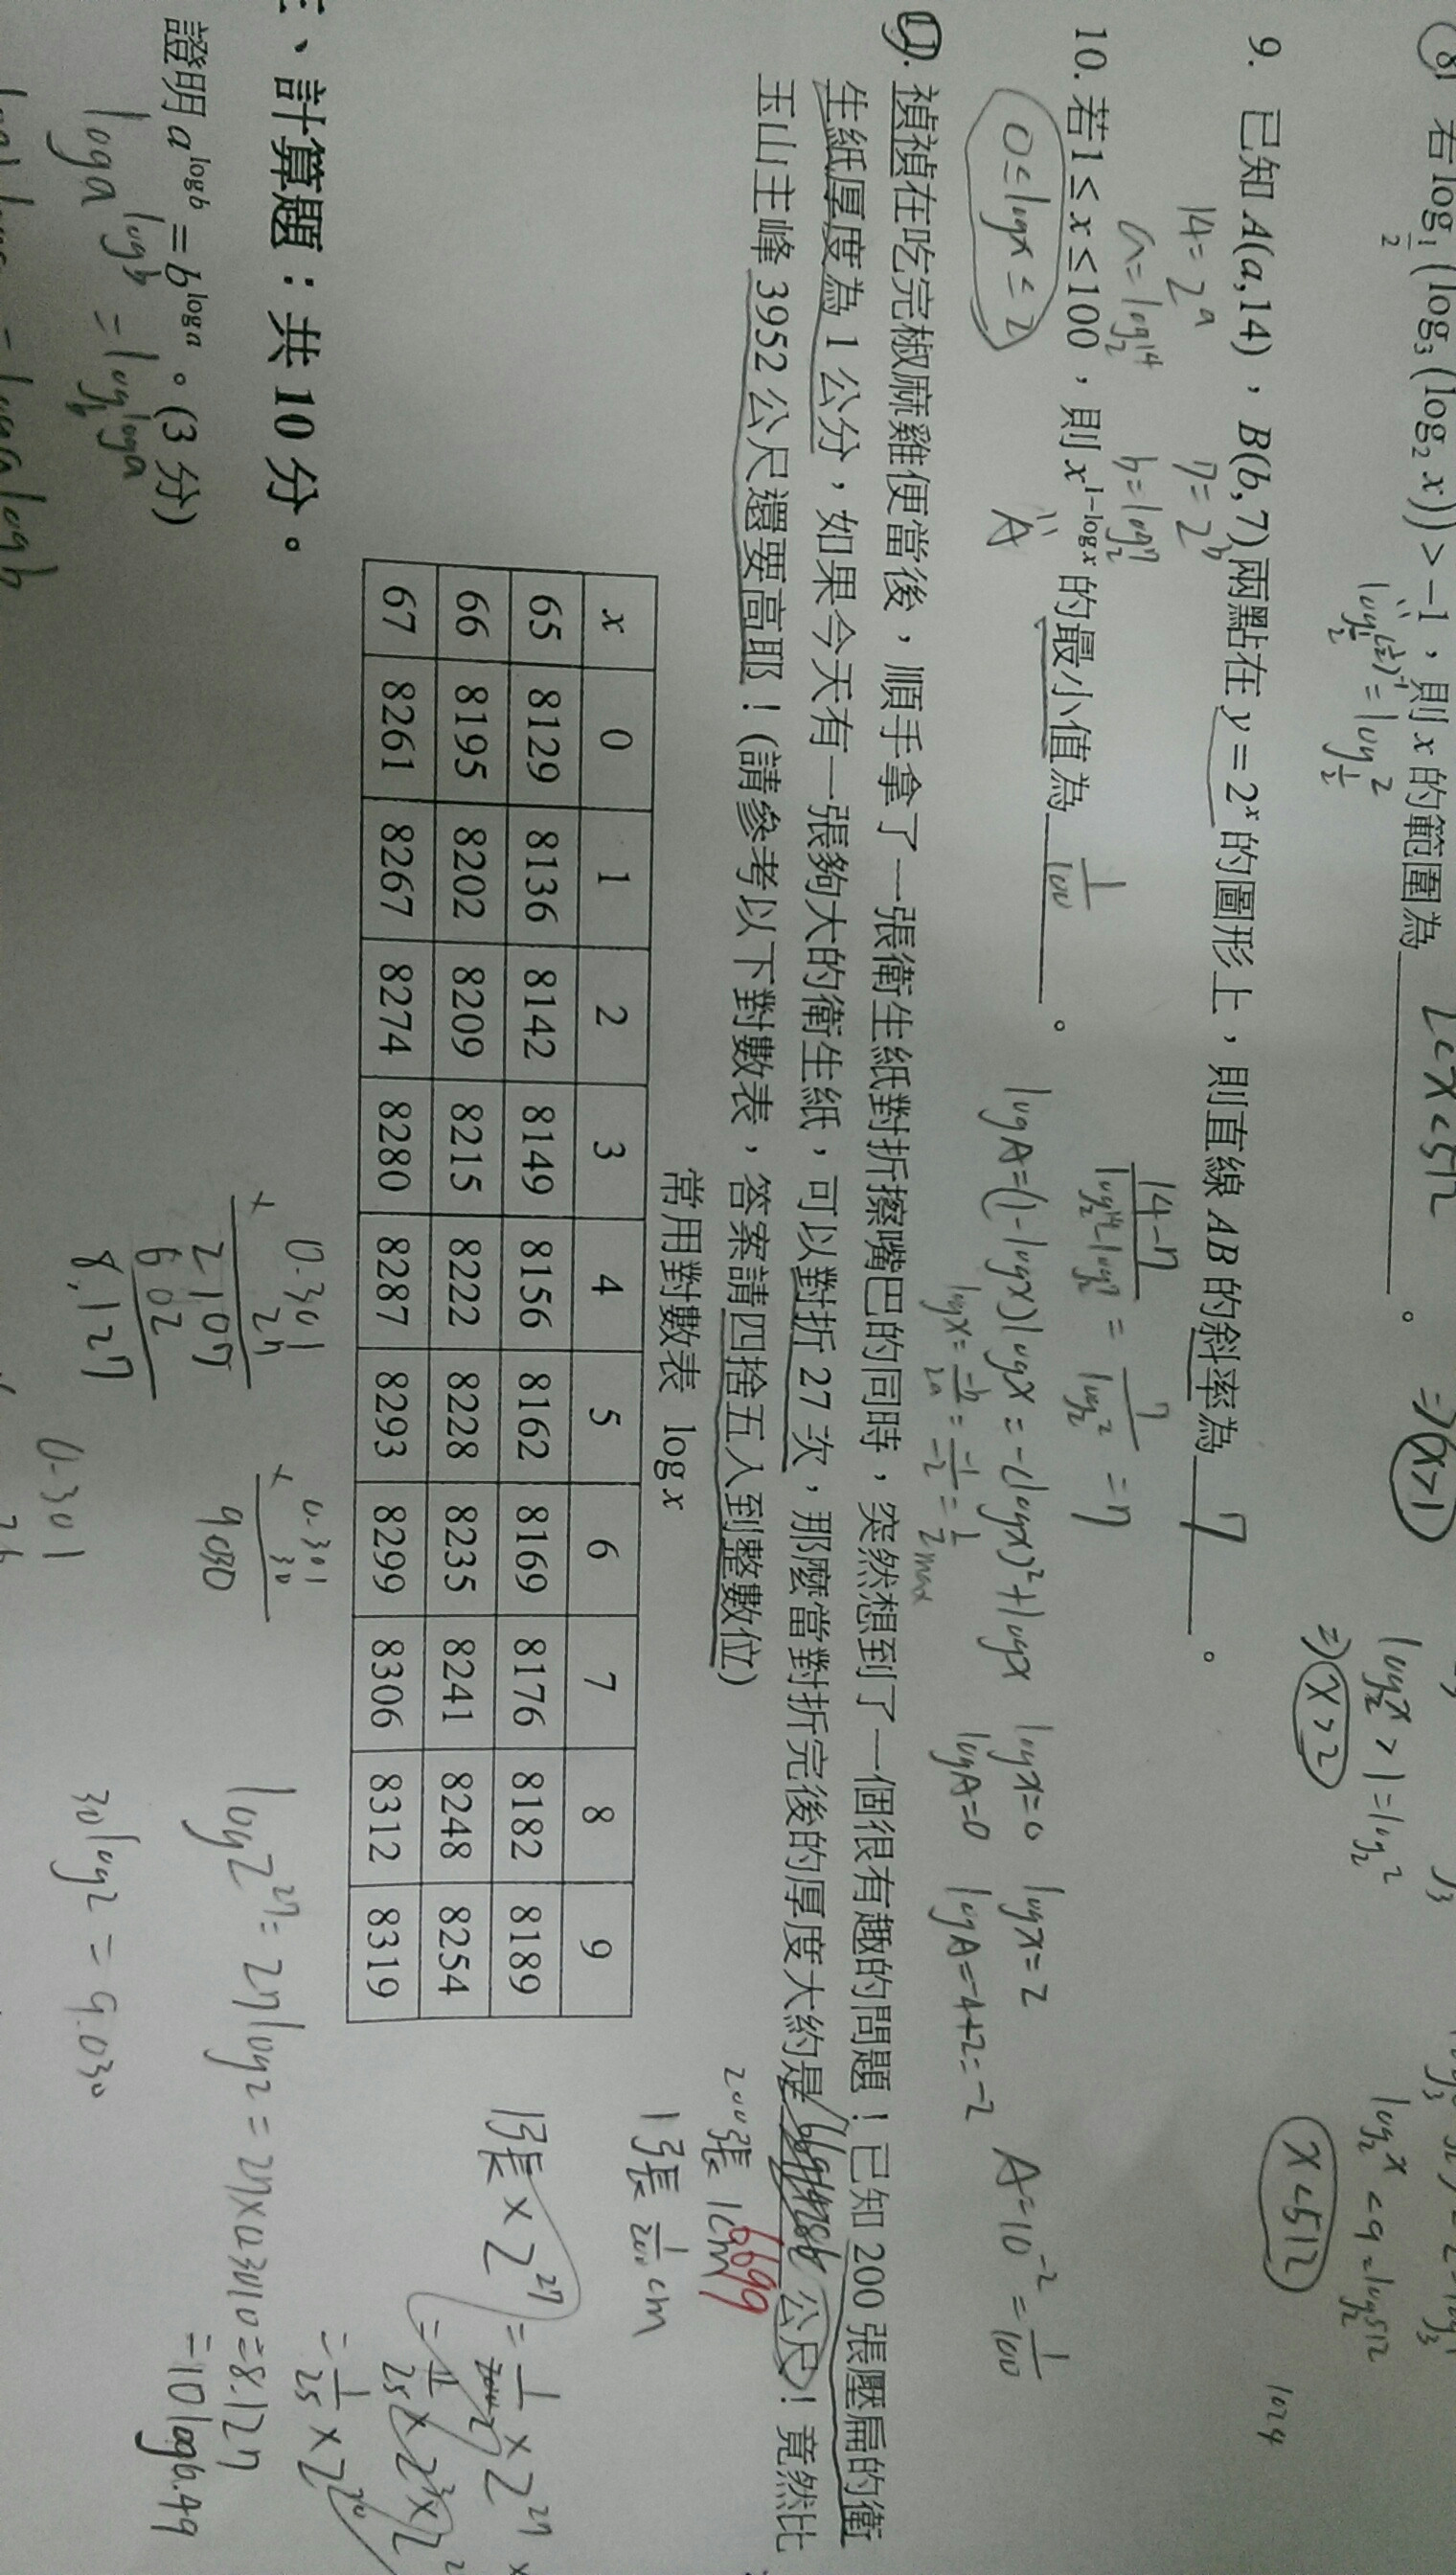 8. 若 log_{1/2}(log₃(log₂ x)) > −1，則 x 的範圍為 2<x<512 。
log_{1/2}(1/2)⁻¹ = log_{1/2} 2
⇒ x>1
log₂x > 1 = log₂2
⇒ x>2
log₂x < 9 = log₂512
x<512
1024
9. 已知 A(a,14)，B(b,7)兩點在 y = 2ˣ 的圖形上，則直線 AB 的斜率為 7 。
14=2ᵃ 7=2ᵇ
a=log₂14 b=log₂7
(14−7)/(log₂14−log₂7) = 7/log₂2 = 7
10. 若 1 ≤ x ≤ 100，則 x^{1−log x} 的最小值為 1/100 。
0≤logx≤2
A
logA=(1−logx)logx = −(logx)²+logx
logx = −b/2a = −1/−2 = 1/2 max
logx=0 logx=2
logA=0 logA=−4+2=−2
A=10⁻² = 1/100
11. 禎禎在吃完椒麻雞便當後，順手拿了一張衛生紙對折擦嘴巴的同時，突然想到了一個很有趣的問題！已知 200 張壓扁的衛
生紙厚度為 1 公分，如果今天有一張夠大的衛生紙，可以對折 27 次，那麼當對折完後的厚度大約是 公尺！竟然比
玉山主峰 3952 公尺還要高耶！(請參考以下對數表，答案請四捨五入到整數位)
6699
200張 1cm
1張 1/200 cm
常用對數表 log x
x 0 1 2 3 4 5 6 7 8 9
65 8129 8136 8142 8149 8156 8162 8169 8176 8182 8189
66 8195 8202 8209 8215 8222 8228 8235 8241 8248 8254
67 8261 8267 8274 8280 8287 8293 8299 8306 8312 8319
1張 × 2²⁷ = 1/200 × 2²⁷
= 1/25 × 2²⁴
0.301
× 27
2107
602
8.127
0.301
× 30
9030
log2²⁷ = 27log2 = 27×0.3010 = 8.127
=10log6.49
30log2 = 9.030
0.301
三、計算題：共 10 分。
證明 a^{log b} = b^{log a}。(3 分)
log a^{log b} = log b^{log a}
= loga logb